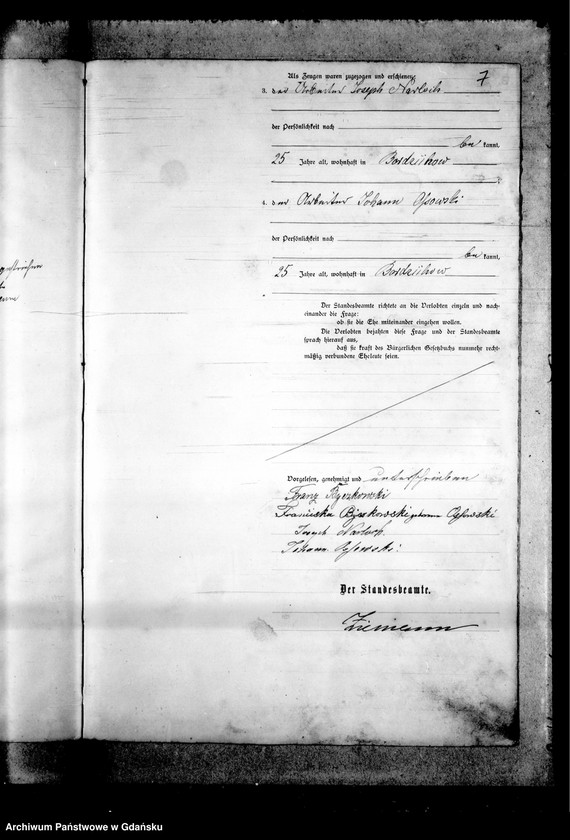 7
Als Zeugen waren zugezogen und erschienen:
3. der Arbeiter Joseph Narloch
der Persönlichkeit nach
be kannt,
25 Jahre alt, wohnhaft in Bordzichow
;
4. der Arbeiter Johann Ossowski
der Persönlichkeit nach
be kannt,
25 Jahre alt, wohnhaft in Bordzichow
Der Standesbeamte richtete an die Verlobten einzeln und nach-
einander die Frage:
ob sie die Ehe miteinander eingehen wollen.
Die Verlobten bejahten diese Frage und der Standesbeamte
sprach hierauf aus,
daß sie kraft des Bürgerlichen Gesetzbuchs nunmehr recht-
mäßig verbundene Eheleute seien.
Vorgelesen, genehmigt und unterschrieben
Franz
Franciska geborene Ossowski
Joseph Narloch.
Johann Ossowski.
Der Standesbeamte.
Ziemann
Archiwum Państwowe w Gdańsku